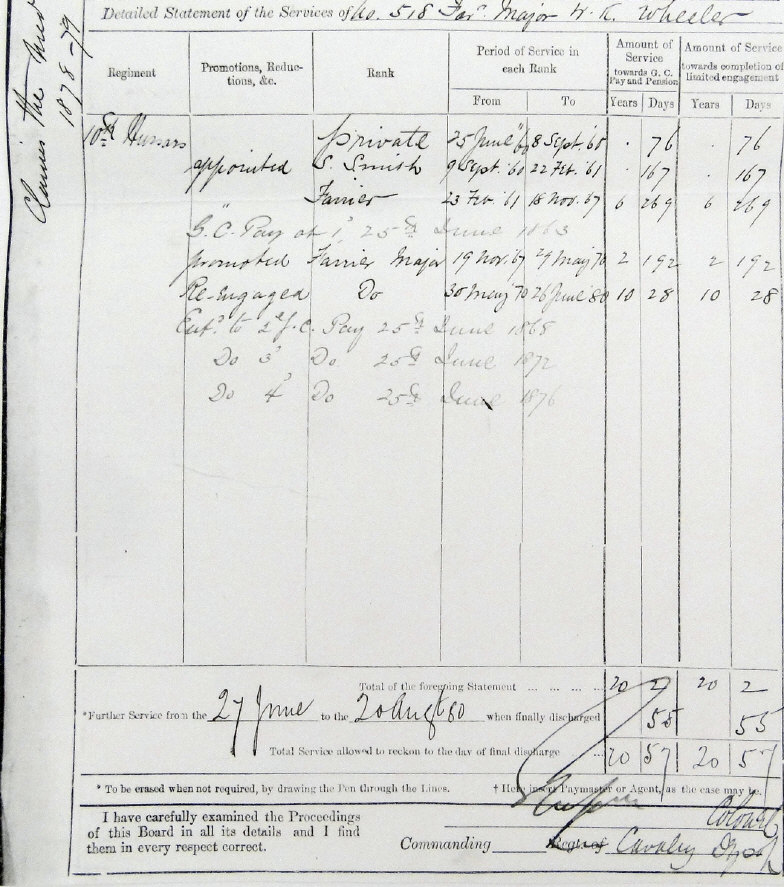 Claims the
1878-79
Detailed Statement of the Services of No. 518 Far.r Major W. K. Wheeler
Regiment
Promotions, Reduc-
tions, &c.
Rank
Period of Service in
each Rank
From
To
Amount of
Service
towards G. C.
Pay and Pension
Years Days
Amount of Service
towards completion of
limited engagement
Years Days
10th Hussars Private 25 June '60 8 Sept. '60 . 76 . 76
appointed S. Smith 9 Sept. '60 22 Feb. '61 . 167 . 167
" Farrier 23 Feb '61 18 Nov. '67 6 269 6 269
G.C. Pay at 1d 25th June 1863
promoted Farrier Major 19 Nov. '67 29 May '70 2 192 2 192
Re-engaged Do 30 May '70 26 June '80 10 28 10 28
Ent.d to 2d G.C. Pay 25th June 1868
Do 3d Do 25th June 1872
Do 4d Do 25th June 1876
Total of the foregoing Statement ... ... ... ... 20 2 20 2
*Further Service from the 27 June to the 20 Aug.t 80 when finally discharged 55 55
Total Service allowed to reckon to the day of final discharge ... 20 57 20 57
* To be erased when not required, by drawing the Pen through the Lines. † Here insert Paymaster or Agent, as the case may be.
I have carefully examined the Proceedings
of this Board in all its details and I find
them in every respect correct.
Colonel
Commanding Cavalry Depot